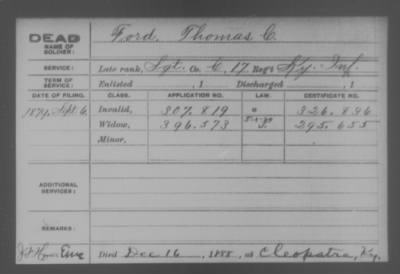 DEAD
NAME OF SOLDIER:
Ford, Thomas C.
SERVICE: Late rank, Sgt. Co. C, 17 Reg't Ky. Inf.
TERM OF SERVICE: Enlisted , 1 Discharged , 1
DATE OF FILING. CLASS. APPLICATION NO. LAW. CERTIFICATE NO.
1879, Sept. 6. Invalid, 307.819 326.886
Widow, 396.573 295.655
Minor,
ADDITIONAL SERVICES:
REMARKS:
Died Dec 16, 1888, at Cleopatra, Ky.